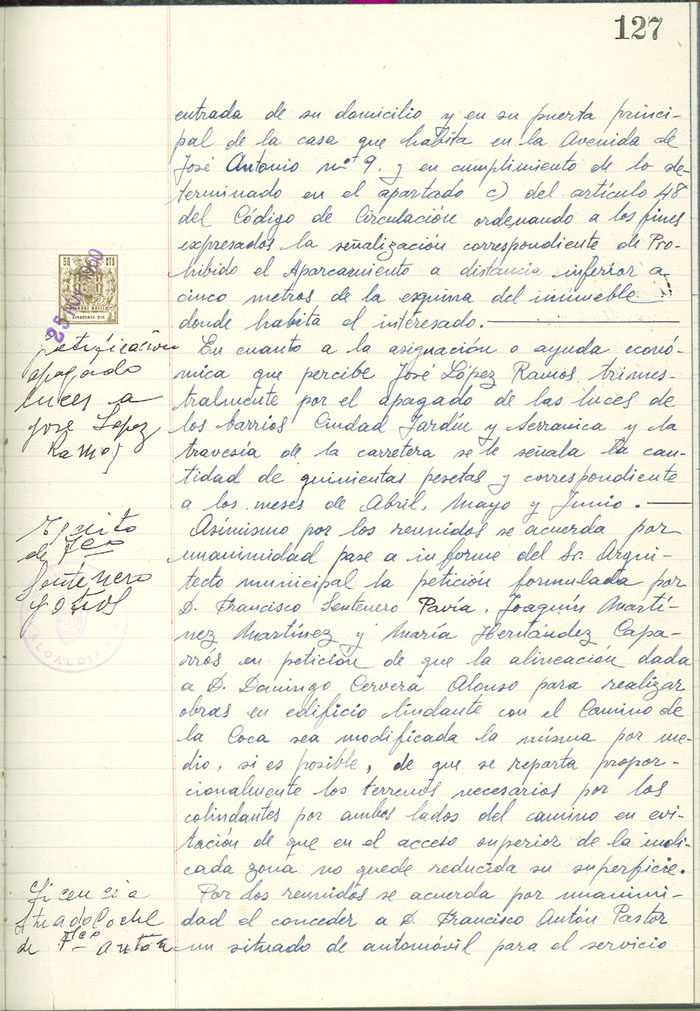 127
entrada de su domicilio y en su puerta princi-
pal de la casa que habita en la Avenida de
José Antonio nº 9. y en cumplimiento de lo de-
terminado en el apartado c) del artículo 48
del Código de Circulación ordenando a los fines
expresados la señalización correspondiente de Pro-
hibido el Aparcamiento a distancia inferior a
cinco metros de la esquina del inmueble
donde habita el interesado.
50 CTS
25 NOV 1960
gratificación
apagado
luces a
José López
Ramos
En cuanto a la asignación o ayuda econó-
mica que percibe José López Ramos trimes-
tralmente por el apagado de las luces de
los barrios Ciudad Jardín y Serranica y la
travesía de la carretera se le señala la can-
tidad de quinientas pesetas y correspondiente
a los meses de Abril, Mayo y Junio.
Escrito
de Fco
Sentenero
y otros
ALCALDIA
Asimismo por los reunidos se acuerda por
unanimidad pase a informe del Sr. Arqui-
tecto municipal la petición formulada por
D. Francisco Sentenero Pavía, Joaquín Martí-
nez Martínez y María Hernández Capa-
rrós en petición de que la alineación dada
a D. Domingo Cerverá Alonso para realizar
obras en edificio lindante con el Camino de
la Coca sea modificada la misma por me-
dio, si es posible, de que se reparta propor-
cionalmente los terrenos necesarios por los
colindantes por ambos lados del camino en evi-
tación de que en el acceso superior de la indi-
cada zona no quede reducida su superficie.
Licencia
situado Coche
de Fco Antón
Por los reunidos se acuerda por unanimi-
dad el conceder a D. Francisco Antón Pastor
un situado de automóvil para el servicio